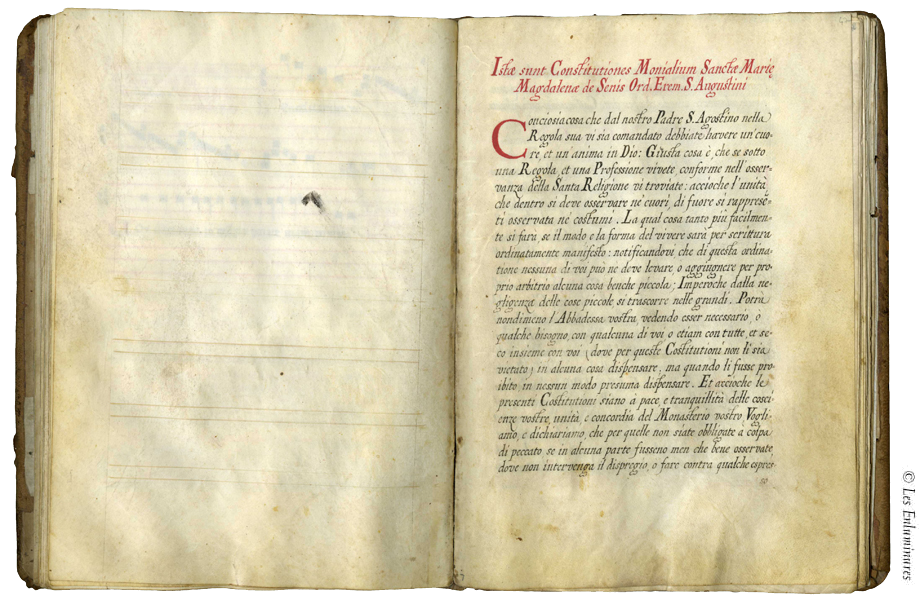 Istæ sunt Constitutiones Monialium Sanctæ Marie
Magdalenæ de Senis Ord. Erem. S. Augustini
Conciosiacosa che dal nostro Padre S. Agostino nella
Regola sua vi sia comandato debbiate havere un'cuo-
re, et un'anima in Dio: Giusta cosa è, che se sotto
una Regola, et una Professione vivete, conforme nell'osser-
vanza della Santa Religione vi troviate: accioche l'unità,
che dentro si deve osservare né cuori, di fuore si rapprese-
ti osservata né costumi. La qual cosa tanto più facilmen-
te si farà, se il modo e la forma del vivere sarà per scrittura
ordinatamente manifesto: notificandovi che di questa ordina-
tione nessuna di voi può ne deve levare, o aggiugnere per pro-
prio arbitrio alcuna cosa benche piccola; Imperoche dalla ne-
gligenza delle cose piccole si trascorre nelle grandi. Potrà
nondimeno l'Abbadessa vostra, vedendo esser necessario, ò
qualche bisogno, con qualcuna di voi o etiam con tutte, et se-
co insieme con voi (dove per queste Costitutioni non li sia
vietato) in alcuna cosa dispensare, ma quando li fusse pro
ibito, in nessun modo presuma dispensare. Et accioche le
presenti Costitutioni siano à pace, e tranquillità delle cosci-
enze vostre, unità, e concordia del Monasterio vostro, Vogli-
amo, e dichiariamo, che per quelle non siate obbligate à colpa
di peccato se in alcuna parte fusseno men che bene osservate,
dove non intervenga il dispregio, o fare contra qualche espres-
so
© Les Enluminures